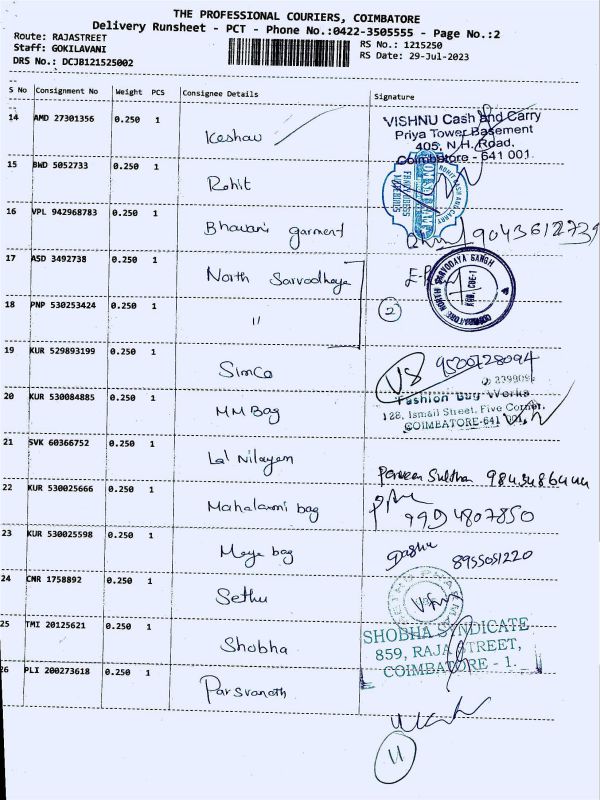 THE PROFESSIONAL COURIERS, COIMBATORE
Delivery Runsheet - PCT - Phone No.:0422-3505555 - Page No.:2
Route: RAJASTREET
RS No.: 1215250
Staff: GOKILAVANI
RS Date: 29-Jul-2023
DRS No.: DCJB121525002
S No Consignment No Weight PCS Consignee Details Signature
14 AMD 27301356 0.250 1 Keshav
VISHNU Cash and Carry
Priya Tower Basement
405, N.H. Road,
Coimbatore - 641 001.
15 BWD 5052733 0.250 1 Rohit
16 VPL 942968783 0.250 1 Bhavani garment 9043612739
17 ASD 3492738 0.250 1 North Sarvodhaya
COIMBATORE NORTH SARVODAYA SANGH
CBE-1
18 PNP 530253424 0.250 1 " 2
19 KUR 529893199 0.250 1 Simco VS 9500728094
20 KUR 530084885 0.250 1 MM Bag
Fashion Bag Works
128, Ismail Street, Five Corner,
COIMBATORE-641 001.
21 SVK 60366752 0.250 1 Lal Nilayam
22 KUR 530025666 0.250 1 Mahalaxmi bag 9994807850
23 KUR 530025598 0.250 1 Maya bag 8955051220
24 CNR 1758892 0.250 1 Sethu
25 TMI 20125621 0.250 1 Shobha
SHOBHA SYNDICATE
859, RAJA STREET,
COIMBATORE - 1.
26 PLI 200273618 0.250 1 Parsvanath
11